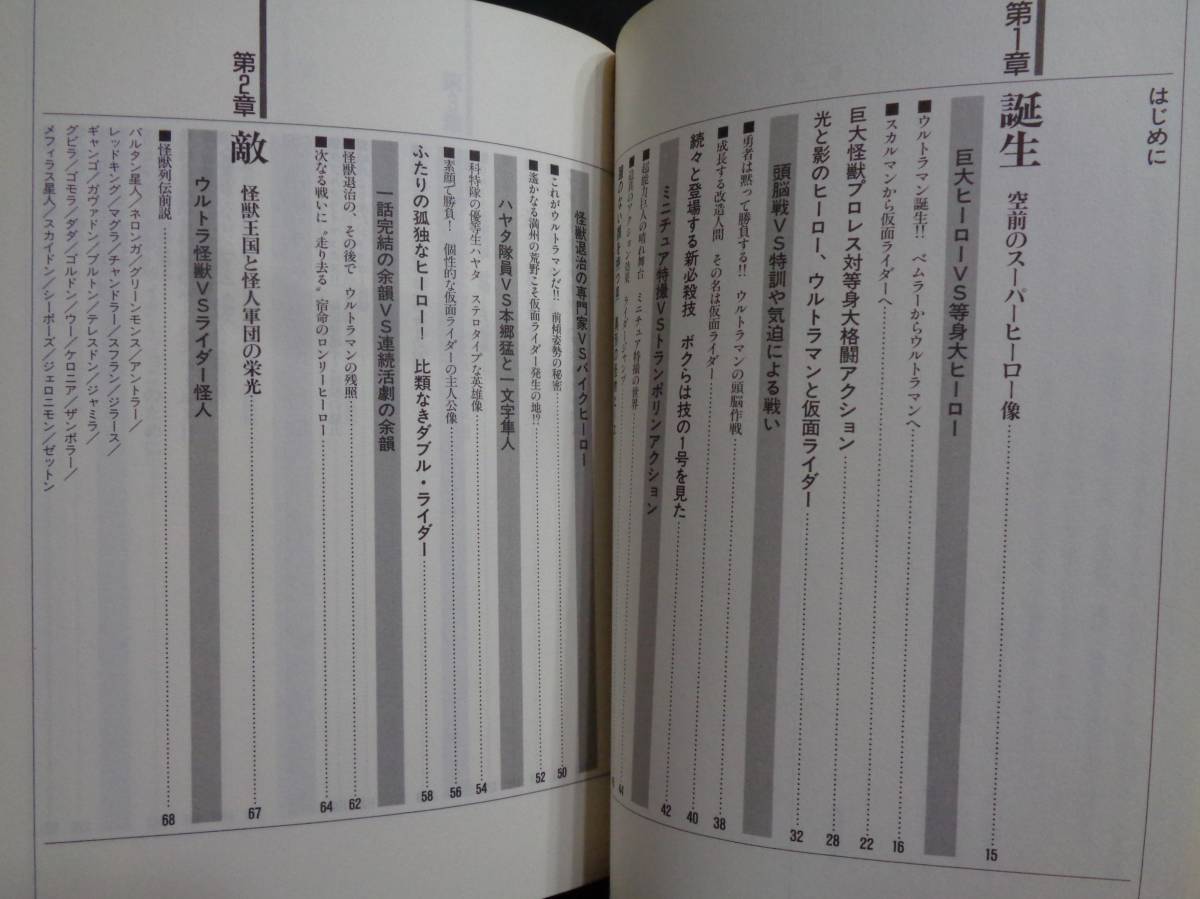 はじめに
第1章
誕生 空前のスーパーヒーロー像 15
巨大ヒーローVS等身大ヒーロー
■ウルトラマン誕生!! ベムラーからウルトラマンへ 16
■スカルマンから仮面ライダーへ 22
巨大怪獣プロレス対等身大格闘アクション 28
光と影のヒーロー、ウルトラマンと仮面ライダー 32
頭脳戦VS特訓や気迫による戦い
■勇者は黙って勝負する!! ウルトラマンの頭脳作戦 38
■成長する改造人間 その名は仮面ライダー 40
続々と登場する新必殺技 ボクらは技の1号を見た 42
ミニチュア特撮VSトランポリンアクション
■超能力巨人の晴れ舞台 ミニチュア特撮の世界 44
怪獣退治の専門家VSバイクヒーロー
■これがウルトラマンだ!! 前傾姿勢の秘密 50
■遙かなる満州の荒野こそ仮面ライダー発生の地!? 52
ハヤタ隊員VS本郷猛と一文字隼人
■科特隊の優等生ハヤタ ステロタイプな英雄像 54
■素顔で勝負! 個性的な仮面ライダーの主人公像 56
ふたりの孤独なヒーロー! 比類なきダブル・ライダー 58
一話完結の余韻VS連続活劇の余韻
■怪獣退治の、その後で ウルトラマンの残照 62
■次なる戦いに〝走り去る〟宿命のロンリーヒーロー 64
第2章
敵 怪獣王国と怪人軍団の栄光 67
ウルトラ怪獣VSライダー怪人
■怪獣列伝前説 68
バルタン星人/ネロンガ/グリーンモンス/アントラー/
レッドキング/マグラ/チャンドラー/スフラン/ジラース/
ギャンゴ/ガヴァドン/ブルトン/テレスドン/ジャミラ/
グビラ/ゴモラ/ダダ/ゴルドン/ウー/ケロニア/ザンボラー/
メフィラス星人/スカイドン/シーボーズ/ジェロニモン/ゼットン